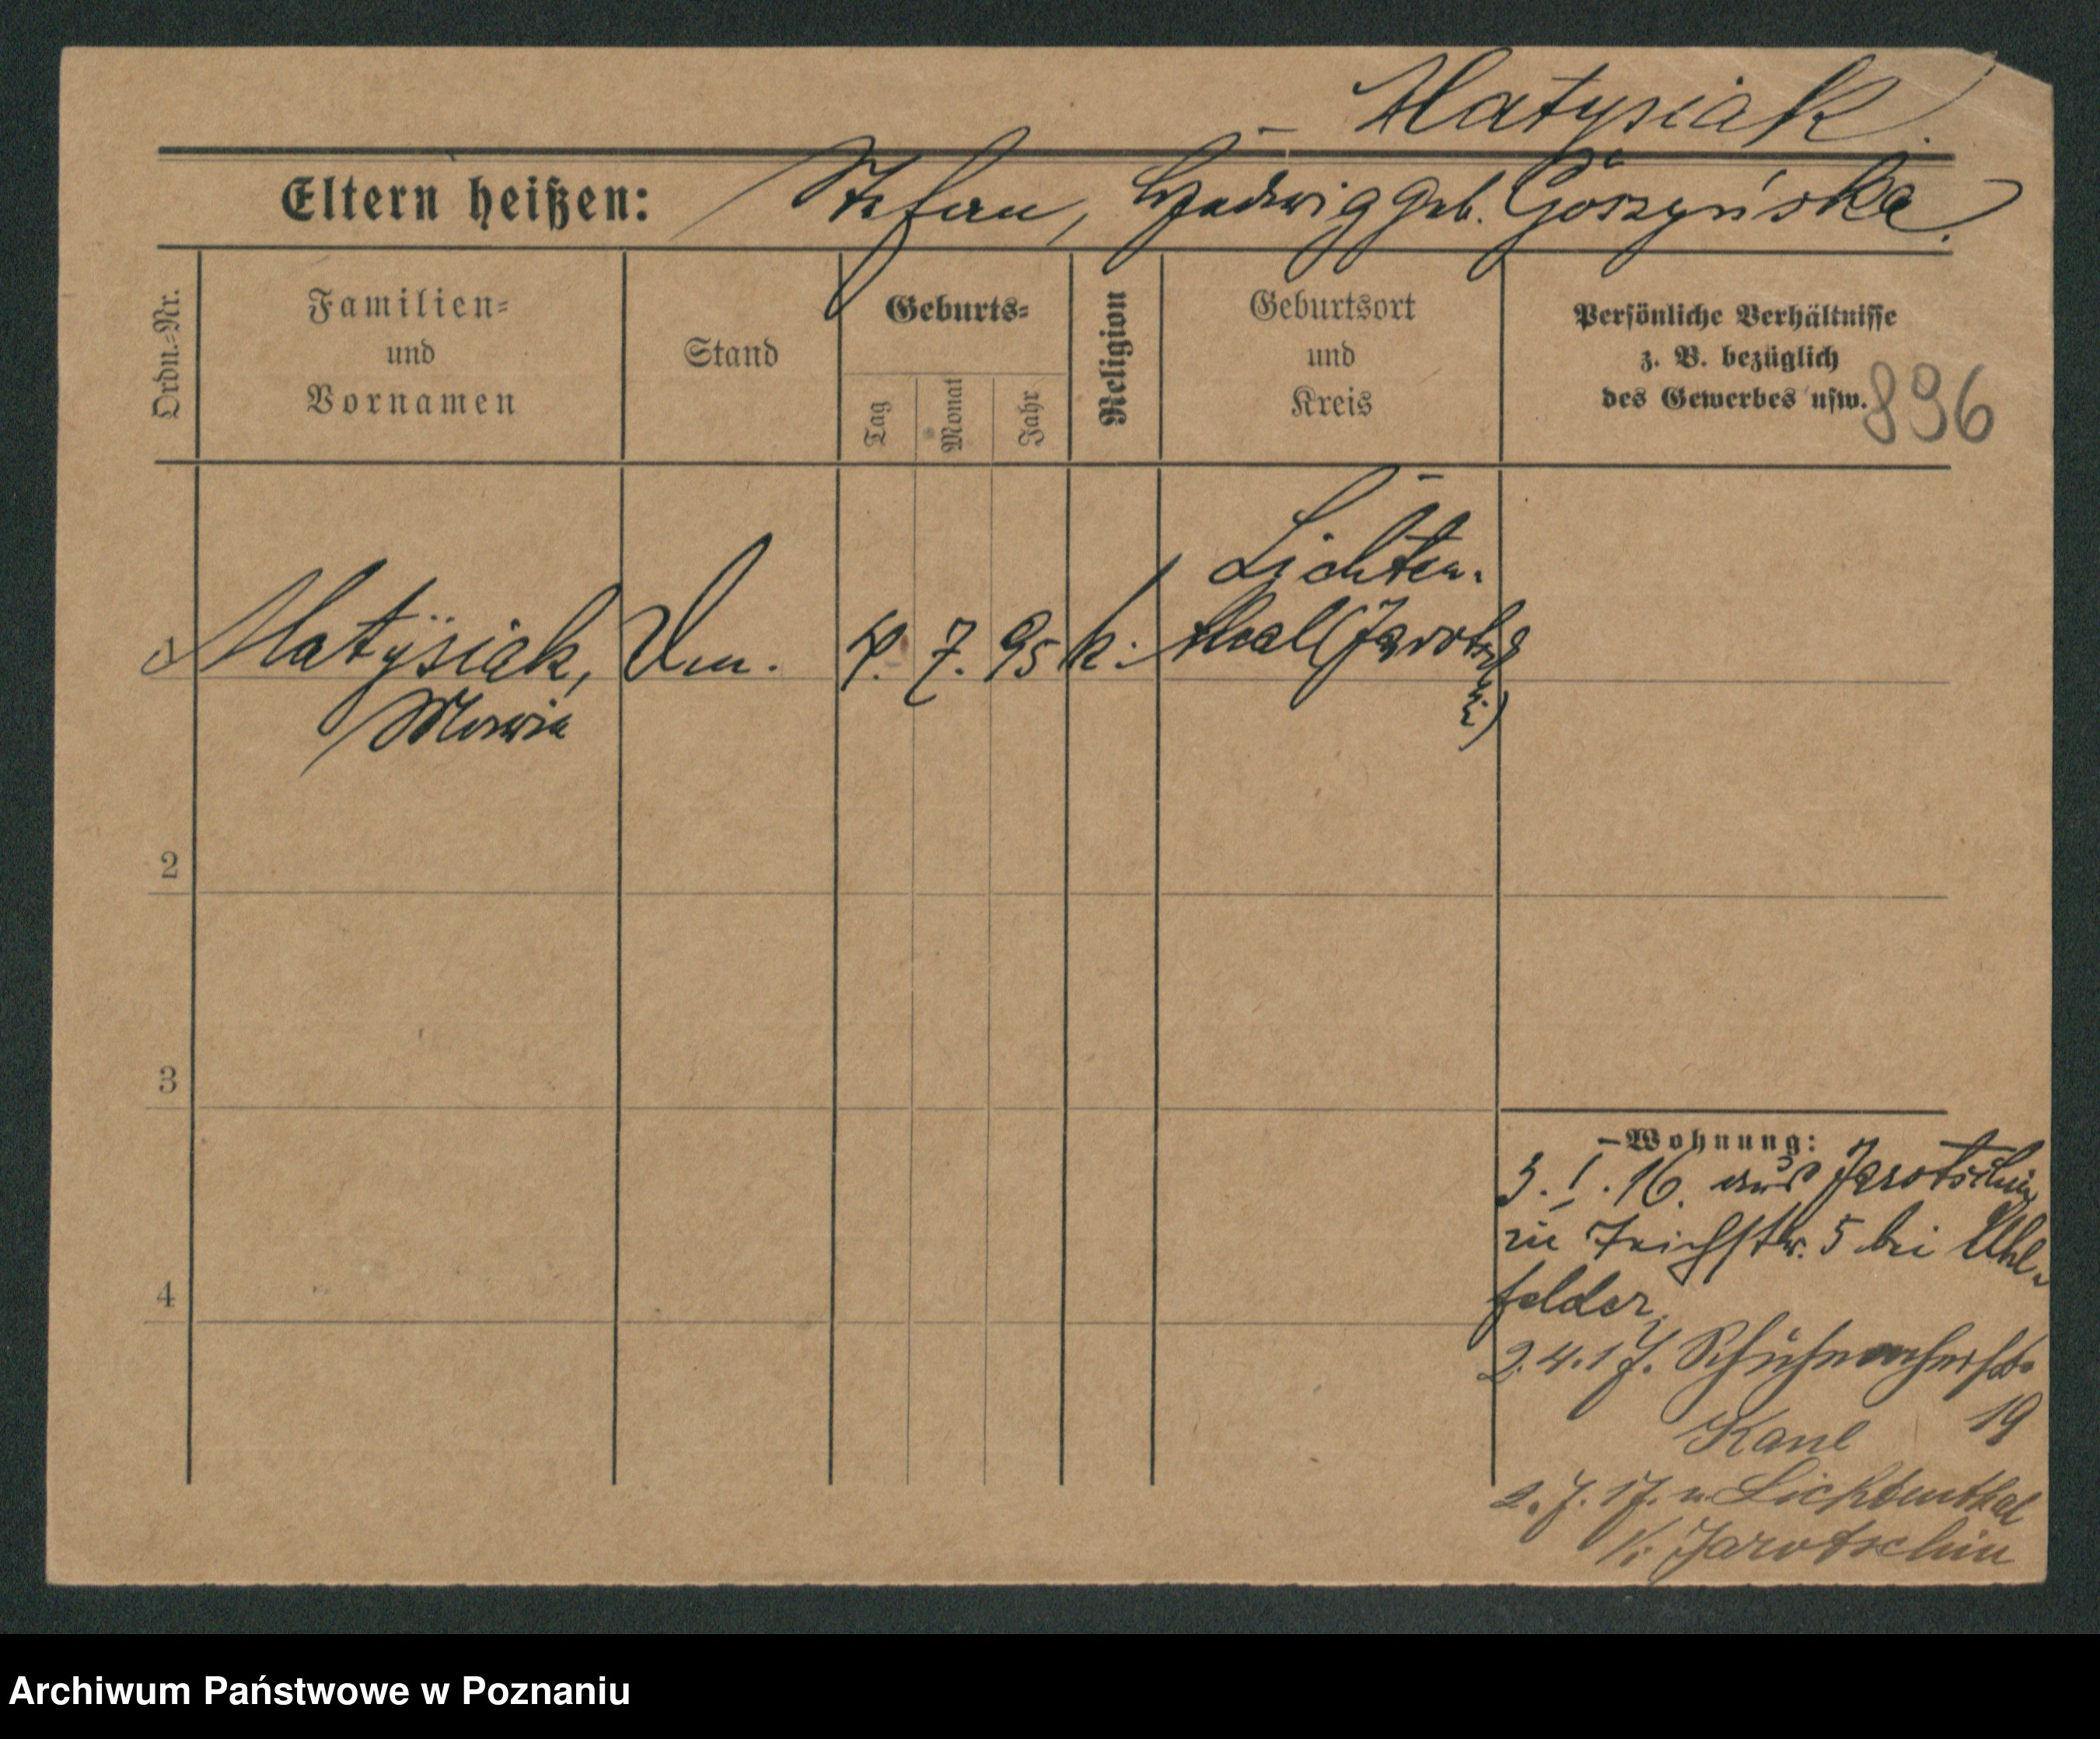 Matysiak.
Eltern heißen: Stefan, Hedwig geb. Górzyńska.
Ordn.-Nr.
Familien-
und
Vornamen
Stand
Geburts-
Tag
Monat
Jahr
Religion
Geburtsort
und
Kreis
Persönliche Verhältnisse
z. B. bezüglich
des Gewerbes usw.
896
Lichten-
Matysiak, 7. 95 k. thal (Jarotsch
Maria
2
3
4
Wohnung:
3. 1. 16. aus Jarotschin
in Teichstr. 5 bei Uhl-
felder,
2.4.17. Schuhmacherstr.
19
2. 7. 17. n. Lichtenthal
K. Jarotschin
Archiwum Państwowe w Poznaniu